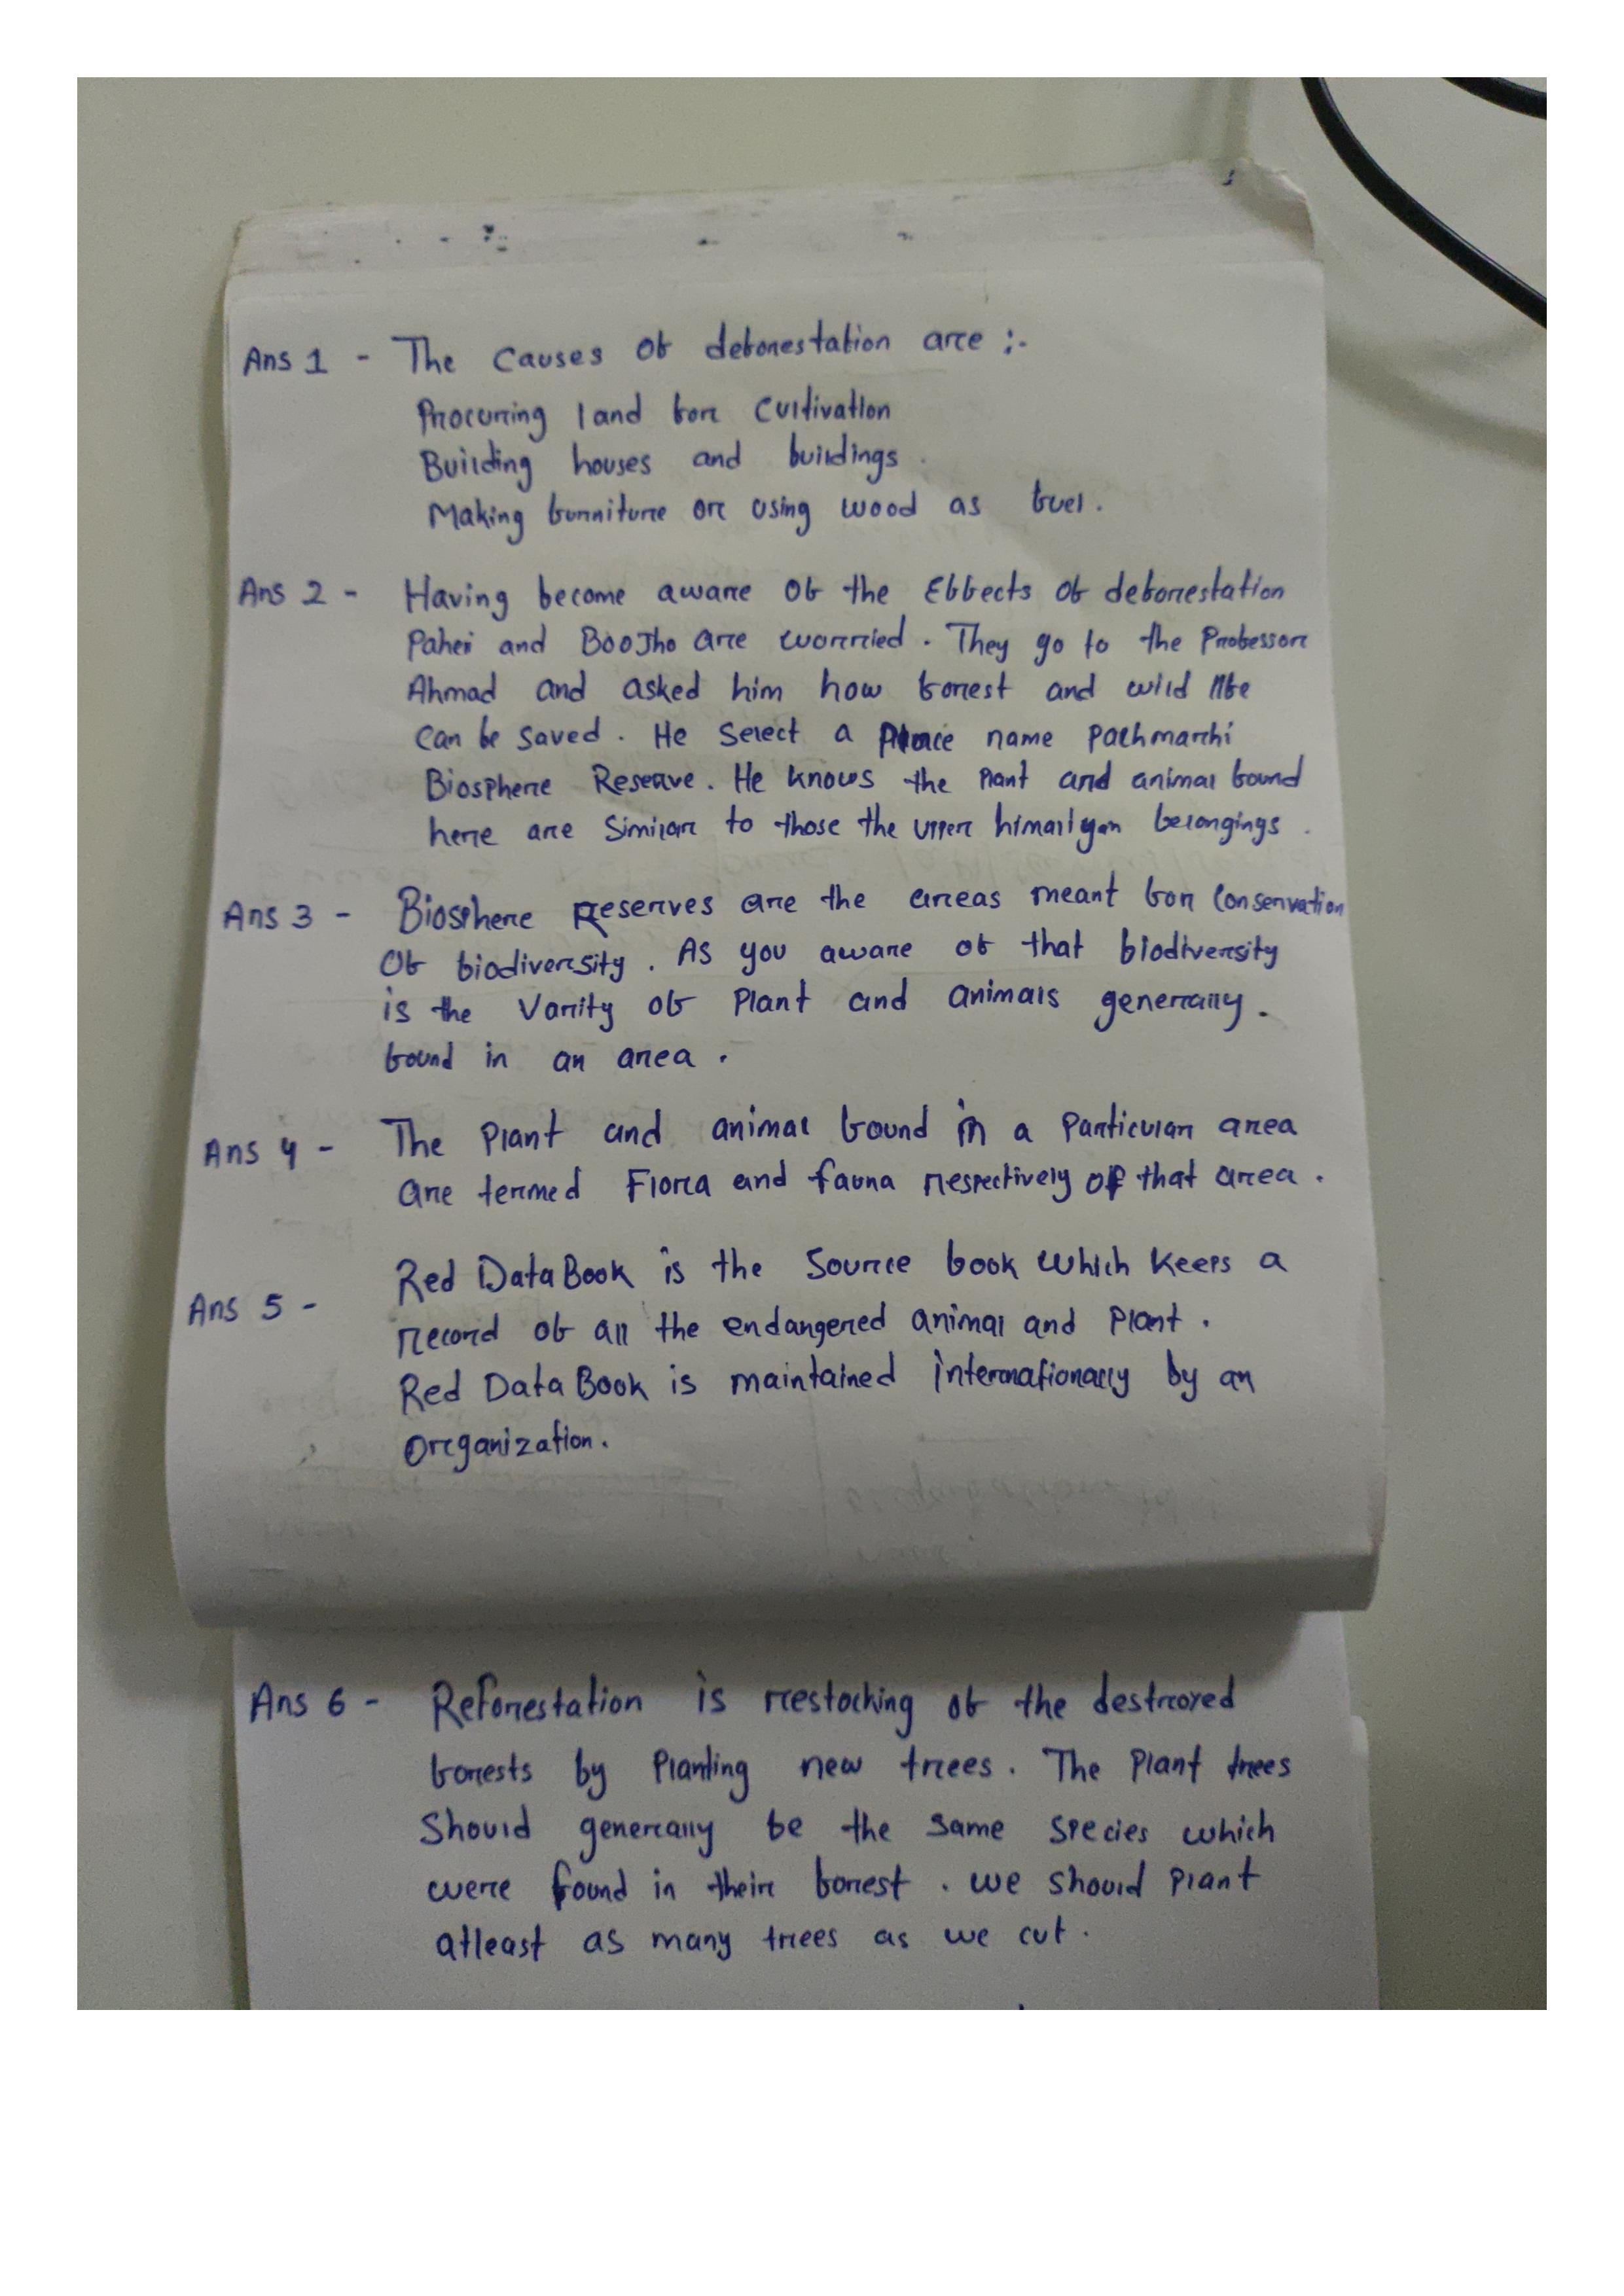 Ans 1 - The Causes of deforestation are :-
Procuring land for Cultivation
Building houses and buildings.
Making furniture or using wood as fuel.
Ans 2 - Having become aware of the Effects of deforestation
Paheli and BooJho are worried. They go to the Professor
Ahmad and asked him how forest and wild life
can be saved. He Select a Place name pachmarhi
Biosphere Reserve. He knows the Plant and animal found
here are Similar to those the upper himaliyan belongings.
Ans 3 - Biosphere Reserves are the areas meant for Conservation
Of biodiversity. As you aware of that biodiversity
is the Varity of Plant and animals generally.
found in an area.
Ans 4 - The Plant and animal found in a Particular area
are termed Flora and fauna respectively of that area.
Ans 5 - Red Data Book is the Source book which keeps a
record of all the endangered animal and Plant.
Red Data Book is maintained internationally by an
Organization.
Ans 6 - Reforestation is restocking of the destroyed
forests by Planting new trees. The Plant trees
Should generally be the same Species which
were found in their forest. we should Plant
atleast as many trees as we cut.